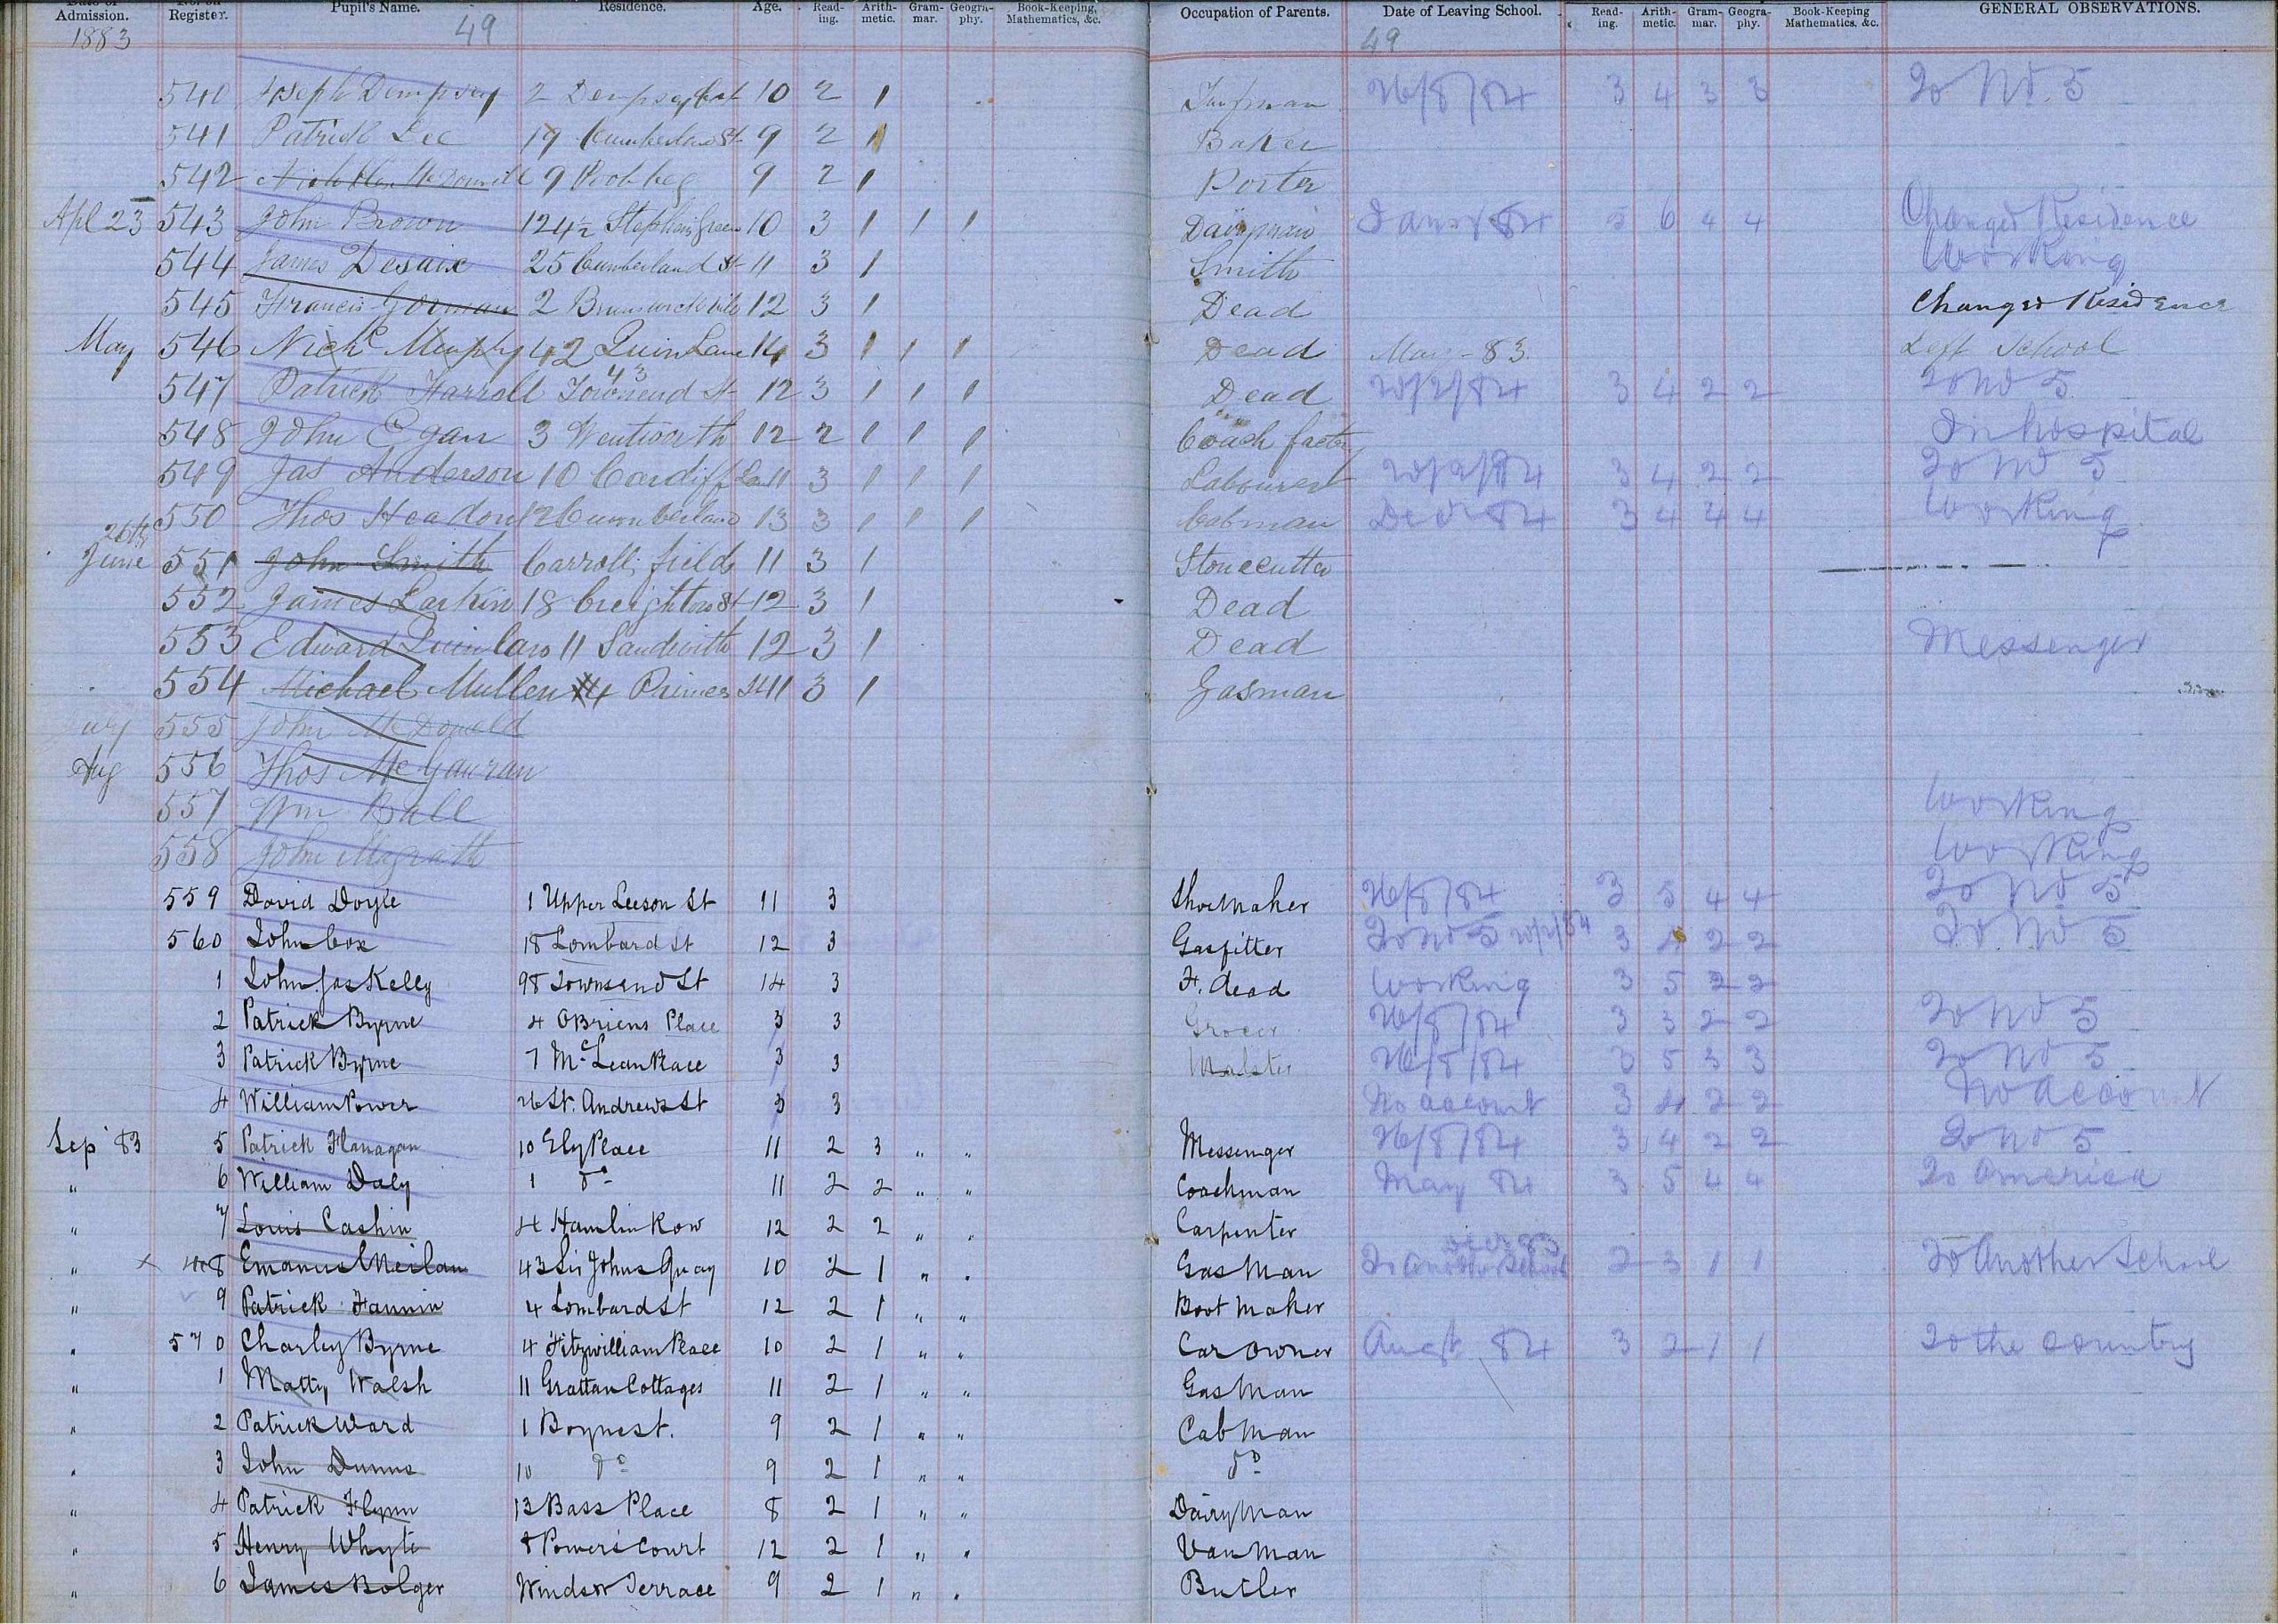 Date of Admission. No. on Register. Pupil's Name. Residence. Age. Read-ing. Arith-metic. Gram-mar. Geogra-phy. Book-Keeping, Mathematics, &c. Occupation of Parents. Date of Leaving School. Read-ing. Arith-metic. Gram-mar. Geogra-phy. Book-Keeping Mathematics, &c. GENERAL OBSERVATIONS.
1883 49 49
540 Joseph Dempsey 2 Dempsey Cot 10 2 1 26/8/84 3 4 3 3 To No. 5
541 Patrick Lee 19 Cumberland St 9 2 1 Baker
542 McDonnell 9 9 2 1 Porter
Apl 23 543 John Brown 124½ Stephens Green 10 3 1 1 1 Dairyman 84 5 6 4 4 Changed Residence
544 James Desaix 25 Cumberland St 11 3 1 Smith Working
545 Francis Gorman 2 Brunswick 12 3 1 Dead Changed Residence
May 546 Nichs Murphy 42 Quin Lane 14 3 1 1 1 Dead May - 83. Left School
547 Patrick Harroll 43 Townsend St 12 3 1 1 1 Dead 20/2/84 3 4 2 2 To No 5
548 John Egan 3 Wentworth 12 2 1 1 1 Coach factory In hospital
549 Jas Anderson 10 Cardiff Lane 11 3 1 1 1 Labourer 20/2/84 3 4 2 2 To No 5
550 Thos Headon 12 Cumberland 13 3 1 1 1 Cabman Decr 84 3 4 4 4 Working
26th June 551 John Smith Carroll field 11 3 1 Stonecutter
552 James Larkin 18 Creighton St 12 3 1 Dead
553 Edward Quinlan 11 Sandwith 12 3 1 Dead Messenger
554 Michael Mullen 4 Princes St 11 3 1 Gasman
July 555 John McDonald
Aug 556 Thos McGauran
557 Wm Ball Working
558 John Magrath Working
559 David Doyle 1 Upper Leeson St 11 3 Shoemaker 26/8/84 3 5 4 4 To No 5
560 John Cox 18 Lombard St 12 3 Gasfitter To No 5 20/2/84 3 4 2 2 To No 5
1 John Jas Kelly 98 Townsend St 14 3 F. dead Working 3 5 2 2
2 Patrick Byrne 4 OBriens Place 3 3 Grocer 26/8/84 3 3 2 2 To No 5
3 Patrick Byrne 7 McLean Place 3 3 Malster 26/8/84 3 5 3 3 To No 5
4 William Power 26 St. Andrews St 3 3 No account 3 4 2 2 No account
Sep '83 5 Patrick Flanagan 10 Ely Place 11 2 3 " " Messenger 26/8/84 3 4 2 2 To No 5
" 6 William Daly 1 Do 11 2 2 " " Coachman May 84 3 5 4 4 To America
" 7 Louis Cashin 4 Hamlin Row 12 2 2 " " Carpenter
" x 8 Emanuel Meilan 43 Sir Johns Quay 10 2 1 " " Gas Man To Another School 2 3 1 1 To Another School
" 9 Patrick Fannin 4 Lombard St 12 2 1 " " Boot Maker
" 570 Charley Byrne 4 Fitzwilliam Place 10 2 1 " " Car Owner Augt 84 3 2 1 1 To the country
" 1 Matty Walsh 11 Grattan Cottages 11 2 1 " " Gas Man
" 2 Patrick Ward 1 Boyne st. 9 2 1 " " Cab Man
" 3 John Dunne 10 Do 9 2 1 " " Do
" 4 Patrick Flynn 13 Bass Place 8 2 1 " " Dairy Man
" 5 Henry Whyte 8 Power's Court 12 2 1 " " Van Man
" 6 James Bolger Windsor Terrace 9 2 1 " " Butler